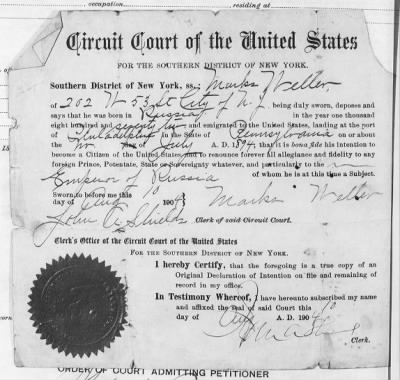 occupation. residing at
Circuit Court of the United States
FOR THE SOUTHERN DISTRICT OF NEW YORK.
Southern District of New York, ss.: Marks Weller,
of 202 W 53 St City of N.Y. being duly sworn, deposes and
says that he was born in Russia in the year one thousand
eight hundred and seventy and emigrated to the United States, landing at the port
of Philadelphia in the State of Pennsylvania on or about
the day of July A. D. 189 that it is bona fide his intention to
become a Citizen of the United States, and to renounce forever all allegiance and fidelity to any
foreign Prince, Potentate, State or Sovereignty whatever, and particularly to the
Emperor of Russia of whom he is at this time a Subject.
Sworn to before me this 10
day of 190 Marks Weller
John A. Shields Clerk of said Circuit Court.
Clerk's Office of the Circuit Court of the United States
FOR THE SOUTHERN DISTRICT OF NEW YORK.
I hereby Certify, that the foregoing is a true copy of an
Original Declaration of Intention on file and remaining of
record in my office.
In Testimony Whereof, I have hereunto subscribed my name
and affixed the seal of said Court this 10
day of A. D. 190
Clerk.
ORDER OF COURT ADMITTING PETITIONER